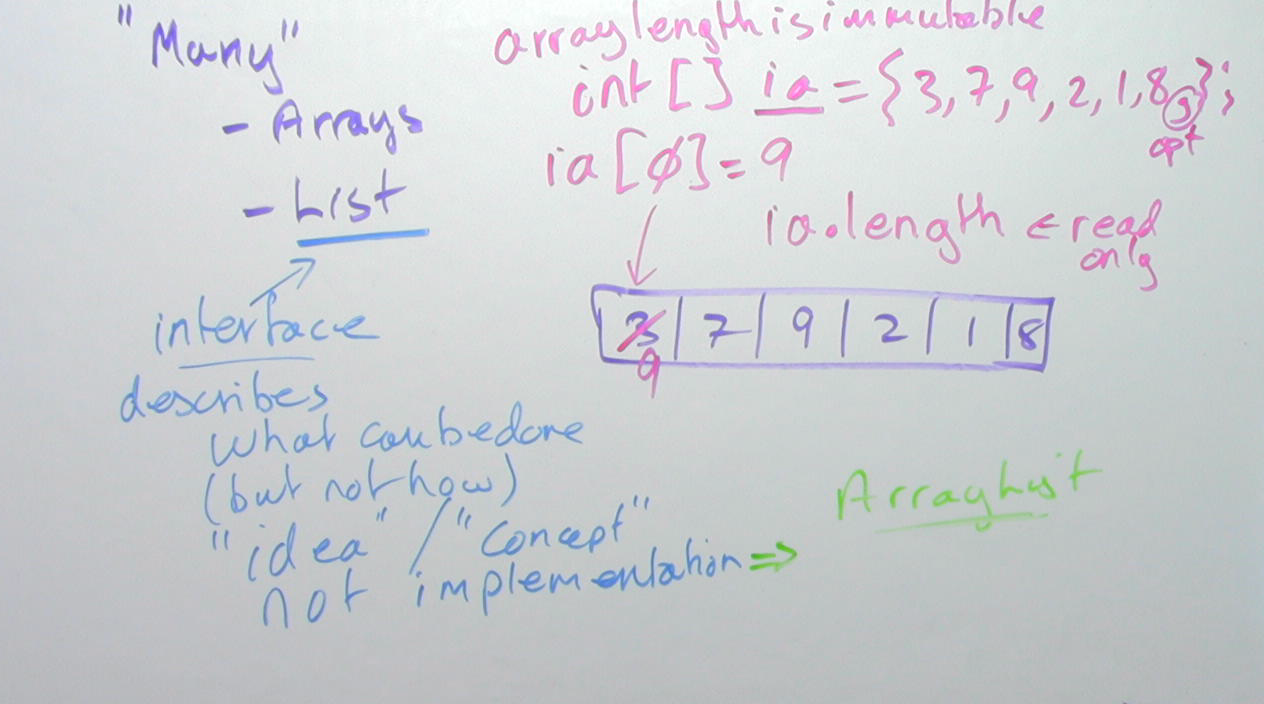 "Many"
- Arrays
- List
interface
describes
what can be done
(but not how)
"idea" / "concept"
not implementation =>
ArrayList
array length is immutable
int [] ia = {3, 7, 9, 2, 1, 8,};
opt
ia [0] = 9
ia.length ← read
only
3 | 7 | 9 | 2 | 1 | 8
9